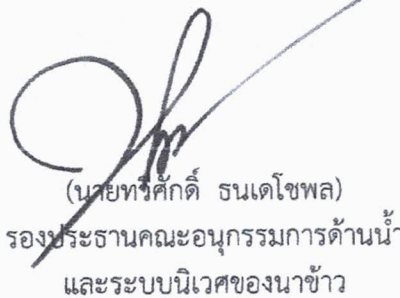 (นายทวีศักดิ์ ธนเดโชพล)
รองประธานคณะอนุกรรมการด้านน้ำ
และระบบนิเวศของนาข้าว